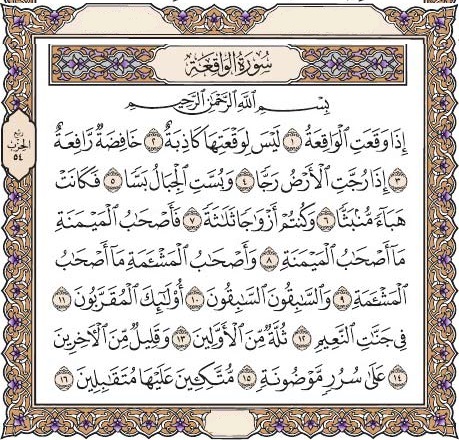 سُورَةُ الْوَاقِعَةِ
بِسْمِ اللَّهِ الرَّحْمَٰنِ الرَّحِيمِ
إِذَا وَقَعَتِ الْوَاقِعَةُ ١ لَيْسَ لِوَقْعَتِهَا كَاذِبَةٌ ٢ خَافِضَةٌ رَّافِعَةٌ
٣ إِذَا رُجَّتِ الْأَرْضُ رَجًّا ٤ وَبُسَّتِ الْجِبَالُ بَسًّا ٥ فَكَانَتْ
هَبَاءً مُّنبَثًّا ٦ وَكُنتُمْ أَزْوَاجًا ثَلَاثَةً ٧ فَأَصْحَابُ الْمَيْمَنَةِ
مَا أَصْحَابُ الْمَيْمَنَةِ ٨ وَأَصْحَابُ الْمَشْأَمَةِ مَا أَصْحَابُ
الْمَشْأَمَةِ ٩ وَالسَّابِقُونَ السَّابِقُونَ ١٠ أُولَٰئِكَ الْمُقَرَّبُونَ ١١
فِي جَنَّاتِ النَّعِيمِ ١٢ ثُلَّةٌ مِّنَ الْأَوَّلِينَ ١٣ وَقَلِيلٌ مِّنَ الْآخِرِينَ
١٤ عَلَىٰ سُرُرٍ مَّوْضُونَةٍ ١٥ مُّتَّكِئِينَ عَلَيْهَا مُتَقَابِلِينَ ١٦
ربع
الحزب
٥٤